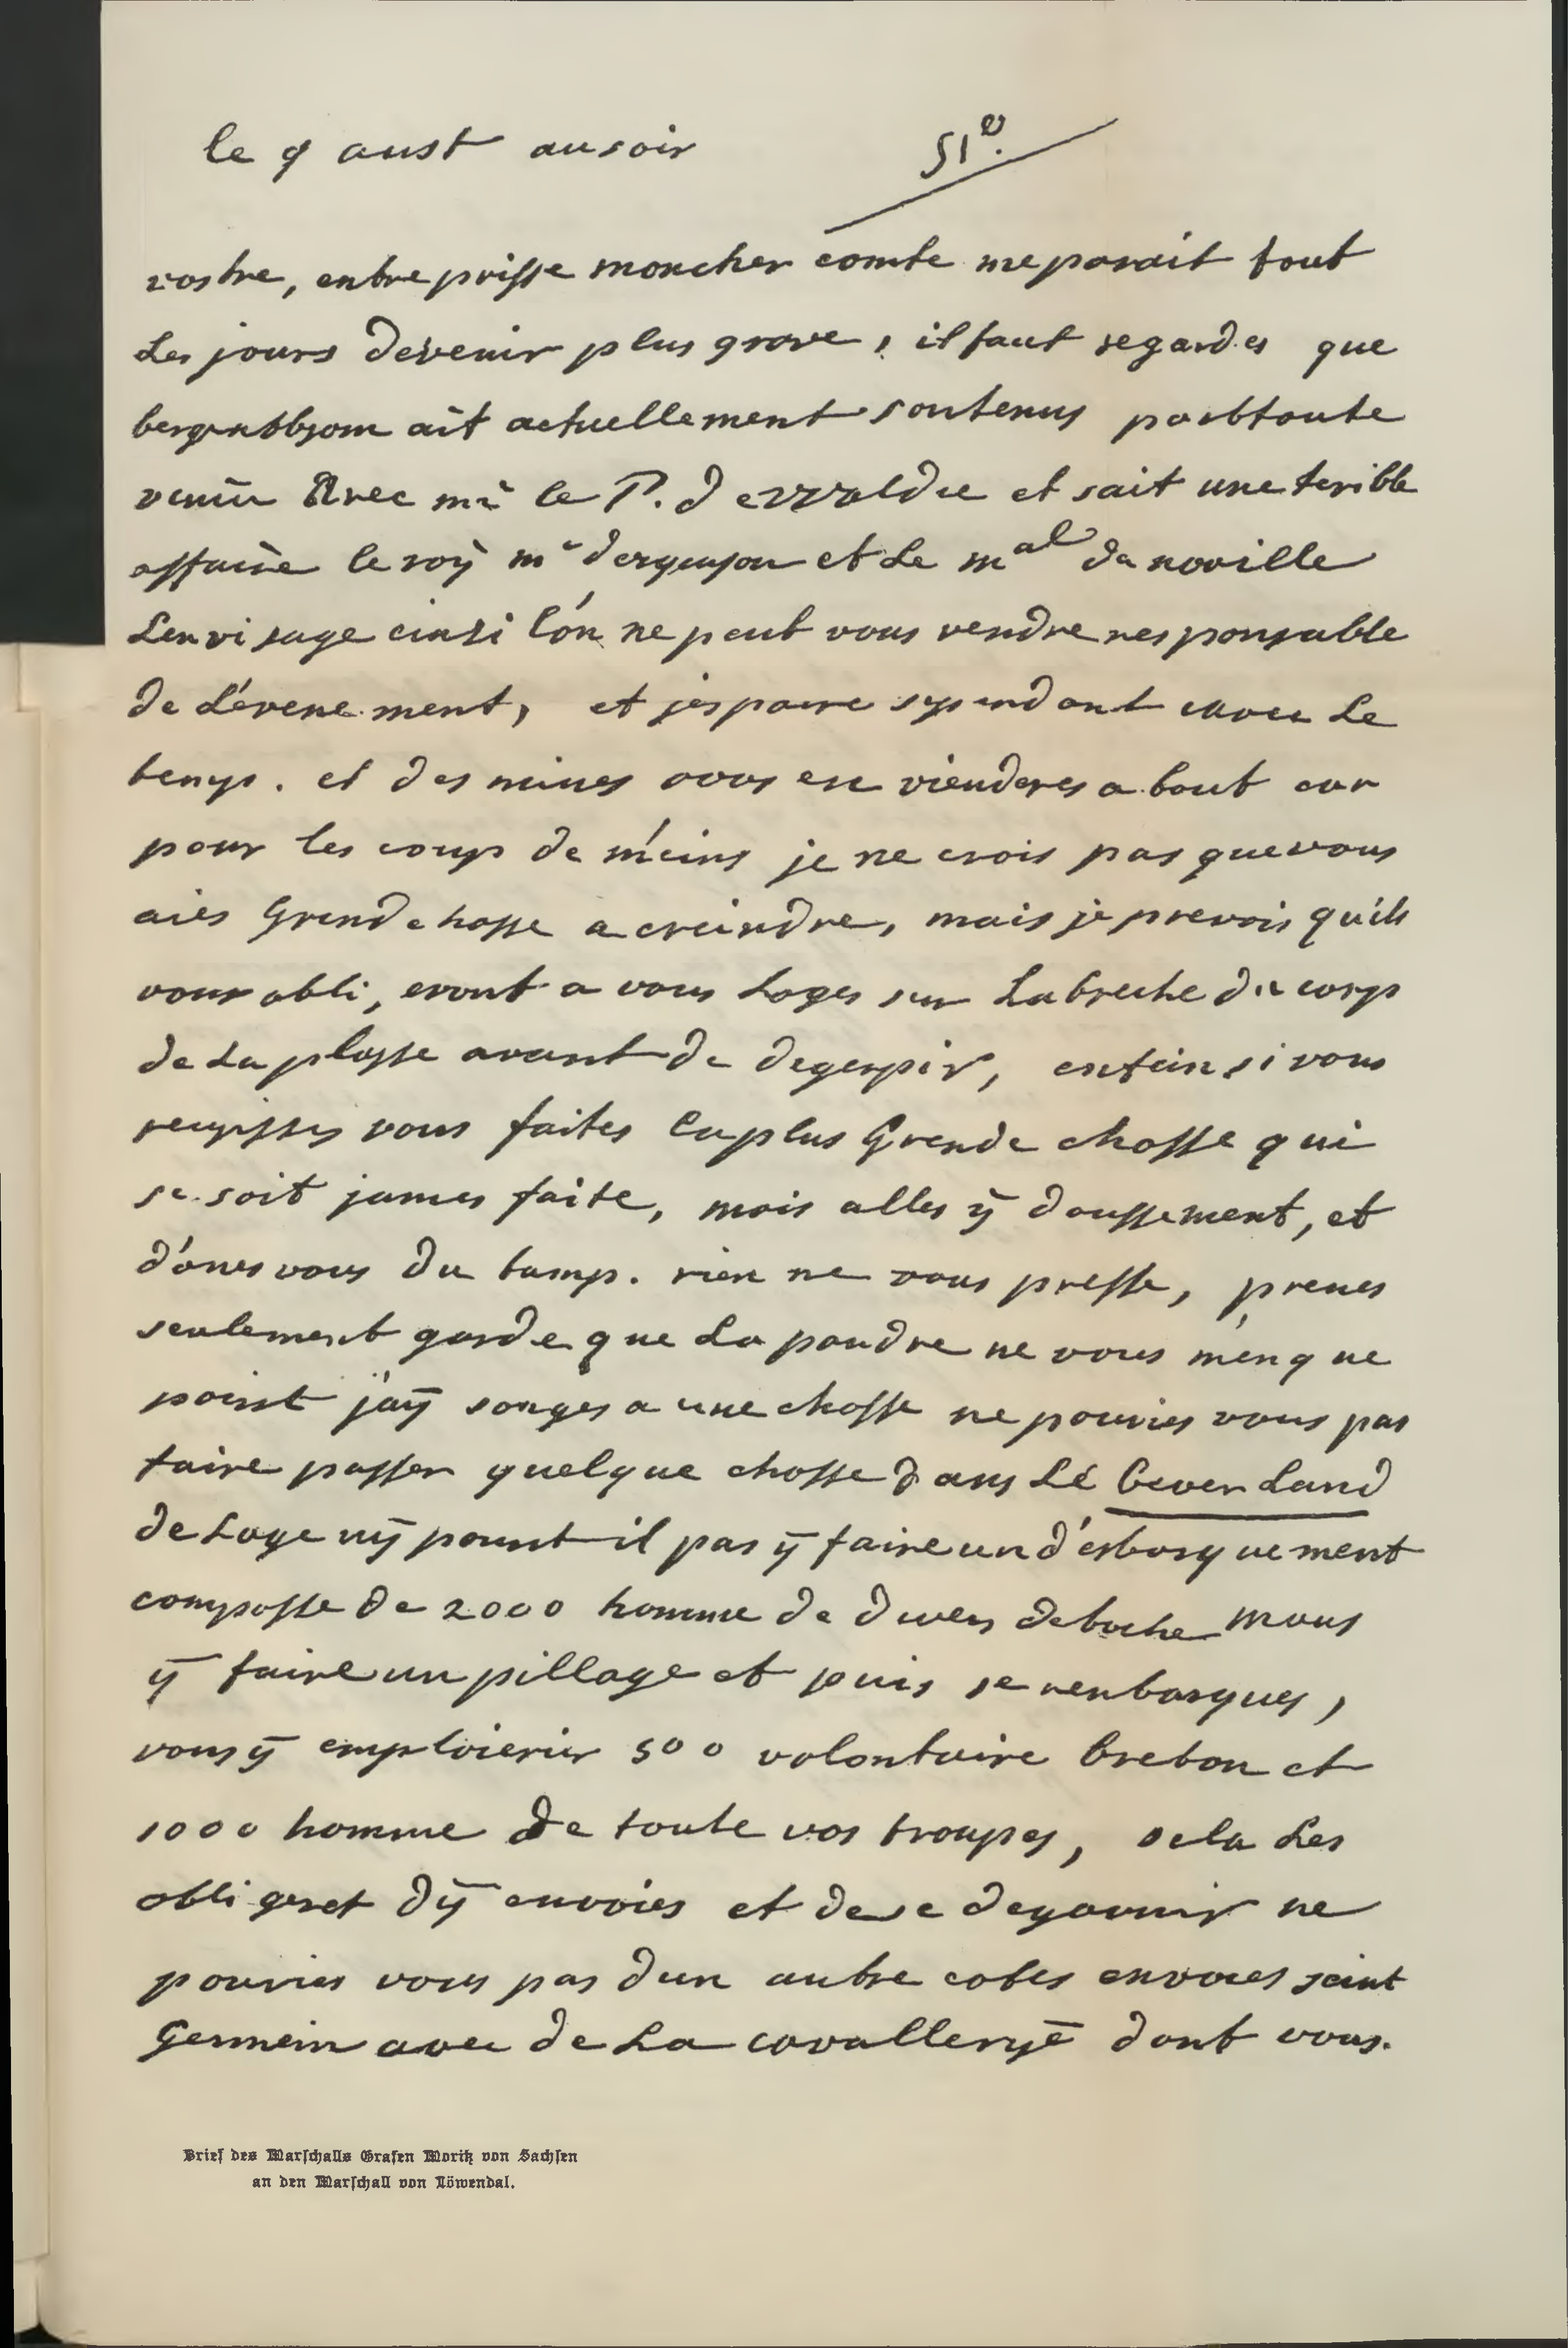 le 9 aust ausoir
51e.
vostre, entreprisse moncher comte meparait tout
Les jours devenir plus grave, ilfaut regarder que
bergentbsom ait actuellement soutenus partoute
avec mr le P. de et sait une terible
affaire le roÿ mr dergenson et Le mal de noaille
Lenvisage einsi l'on ne peut vous rendre responsable
de L'evenement, et jespaire sependant avec Le
temps. et des mines vous en vienderes a bout car
pour les coups de meins je ne crois pas quevous
aies Grend chosse a creindre, mais je prevois quils
vous obli,eront a vous Loger sur Labreche du corps
de La plasse avant de degerpir, enfein si vous
reussisses vous faites la plus Grende chosse qui
se soit james faite, mais alles ÿ doussement, et
d'ones vous du tamps. rien ne vous presse, prenes
seulement garde que La poudre ne vous menque
point j'aÿ songes a une chosse ne pouries vous pas
faire passer quelque chosse dans Lé bever Land
de Loge nÿ pourat il pas ÿ faire un d'esbarquement
composse de 2000 homme de
ÿ faire un pillage et puis se renbarques,
vous ÿ emploieries 500 volontaire breton et
1000 homme de toute vos troupes, sela Les
obligeret dÿ envoies et de se degarnir ne
pouries vous pas dun autre cotes envoies seint
Germein avec de La cavallerÿe dont vous.
Brief des Marschalls Grafen Moritz von Sachsen
an den Marschall von Löwendal.